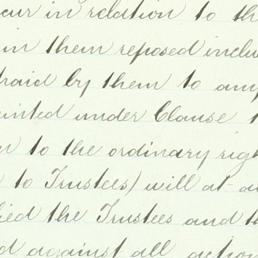 cur in relation to th
in them reposed inclu
paid by them to any
ointed under Clause
n to the ordinary rig
to Trustees) will at a
fied the Trustees and t
d against all action